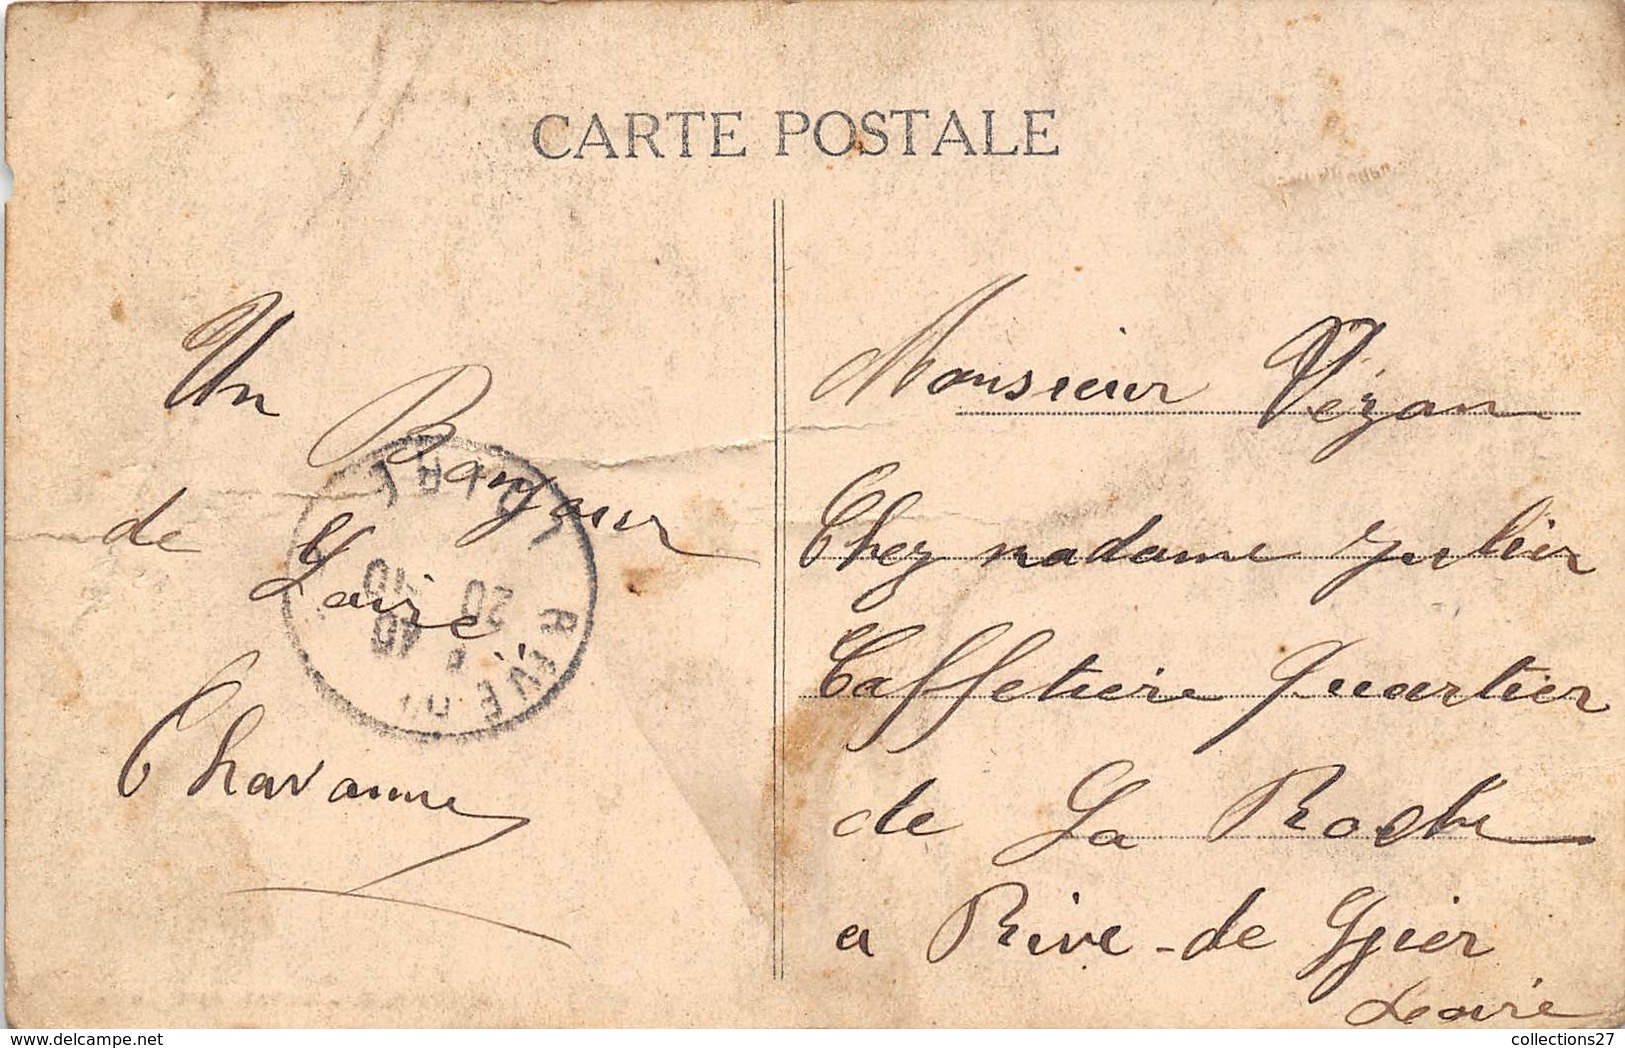 CARTE POSTALE
Un Bonjour
de Loire
Chavanne
Monsieur Vézan
Chez madame Julien
Caffetiere Quartier
de La Roche
a Rive-de Gier
Loire
RIVE DE
20
10
40
collections27